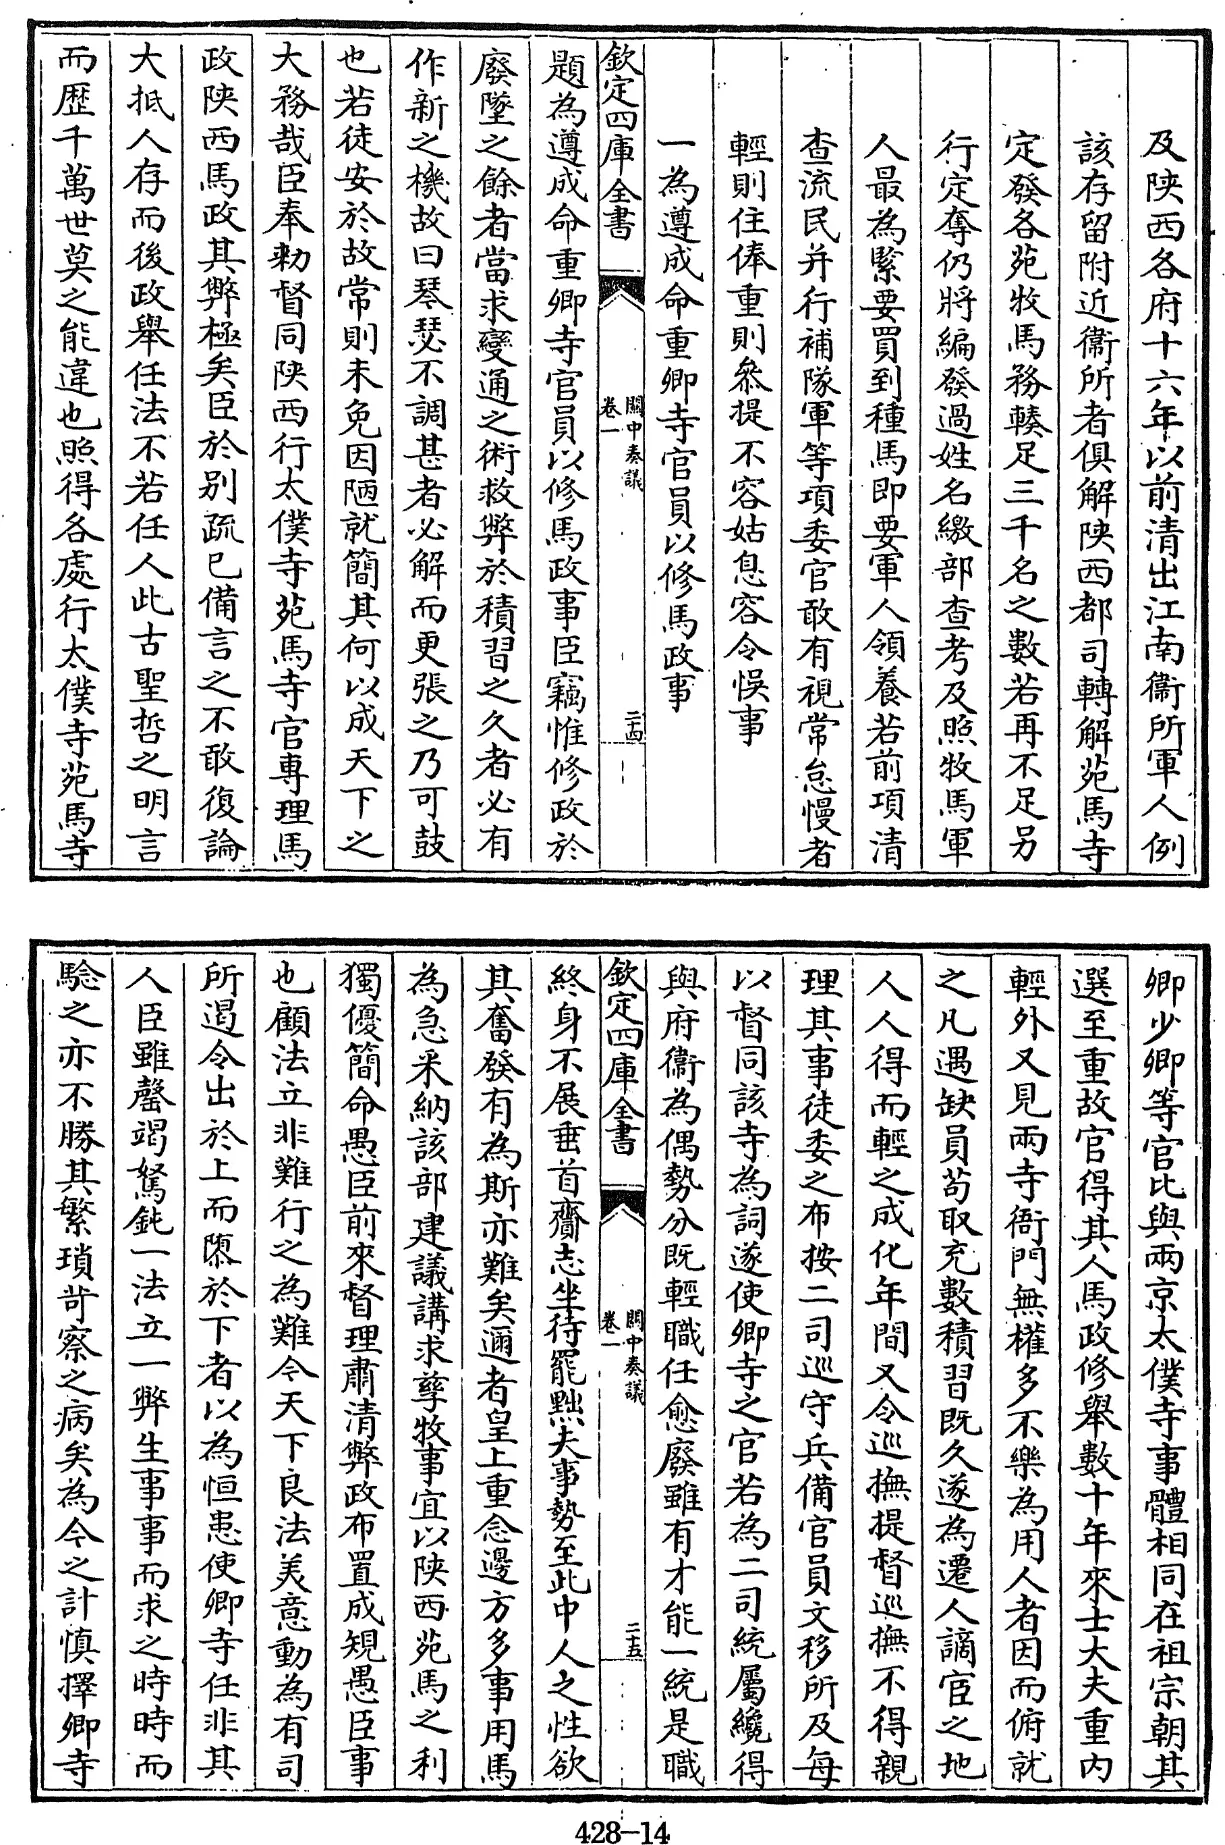 及陜西各府十六年以前清出江南衞所軍人例
該存留附近衞所者俱解陜西都司轉解苑馬寺
定發各苑牧馬務輳足三千名之數若再不足另
行定奪仍將編發過姓名繳部查考及照牧馬軍
人最為緊要買到種馬即要軍人領養若前項清
查流民并行補隊軍等項委官敢有視常怠慢者
輕則住俸重則叅提不容姑息容令悞事
一為遵成命重卿寺官員以修馬政事
欽定四庫全書
關中奏議
卷一
二十四
題為遵成命重卿寺官員以修馬政事臣竊惟修政於
廢墜之餘者當求變通之術救弊於積習之久者必有
作新之機故曰琴瑟不調甚者必解而更張之乃可鼓
也若徒安於故常則未免因陋就簡其何以成天下之
大務哉臣奉勅督同陜西行太僕寺苑馬寺官專理馬
政陜西馬政其弊極矣臣於别疏已備言之不敢復論
大抵人存而後政舉任法不若任人此古聖哲之明言
而歴千萬世莫之能違也照得各處行太僕寺苑馬寺
卿少卿等官比與兩京太僕寺事體相同在祖宗朝其
選至重故官得其人馬政修舉數十年來士大夫重内
輕外又見兩寺衙門無權多不樂為用人者因而俯就
之凡遇缺員苟取充數積習既久遂為遷人謫宦之地
人人得而輕之成化年間又令巡撫提督巡撫不得親
理其事徒委之布按二司巡守兵備官員文移所及每
以督同該寺為詞遂使卿寺之官若為二司統屬纔得
與府衞為偶勢分既輕職任愈廢雖有才能一統是職
欽定四庫全書
關中奏議
卷一
二十五
終身不展垂首齎志坐待罷黜夫事勢至此中人之性欲
其奮發有為斯亦難矣邇者皇上重念邊方多事用馬
為急采納該部建議講求孳牧事宜以陜西苑馬之利
獨優簡命愚臣前來督理肅清弊政布置成規愚臣事
也顧法立非難行之為難今天下良法美意動為有司
所遏令出於上而隳於下者以為恒患使卿寺任非其
人臣雖罄竭駑鈍一法立一弊生事事而求之時時而
驗之亦不勝其繁瑣苛察之病矣為今之計慎擇卿寺
428-14